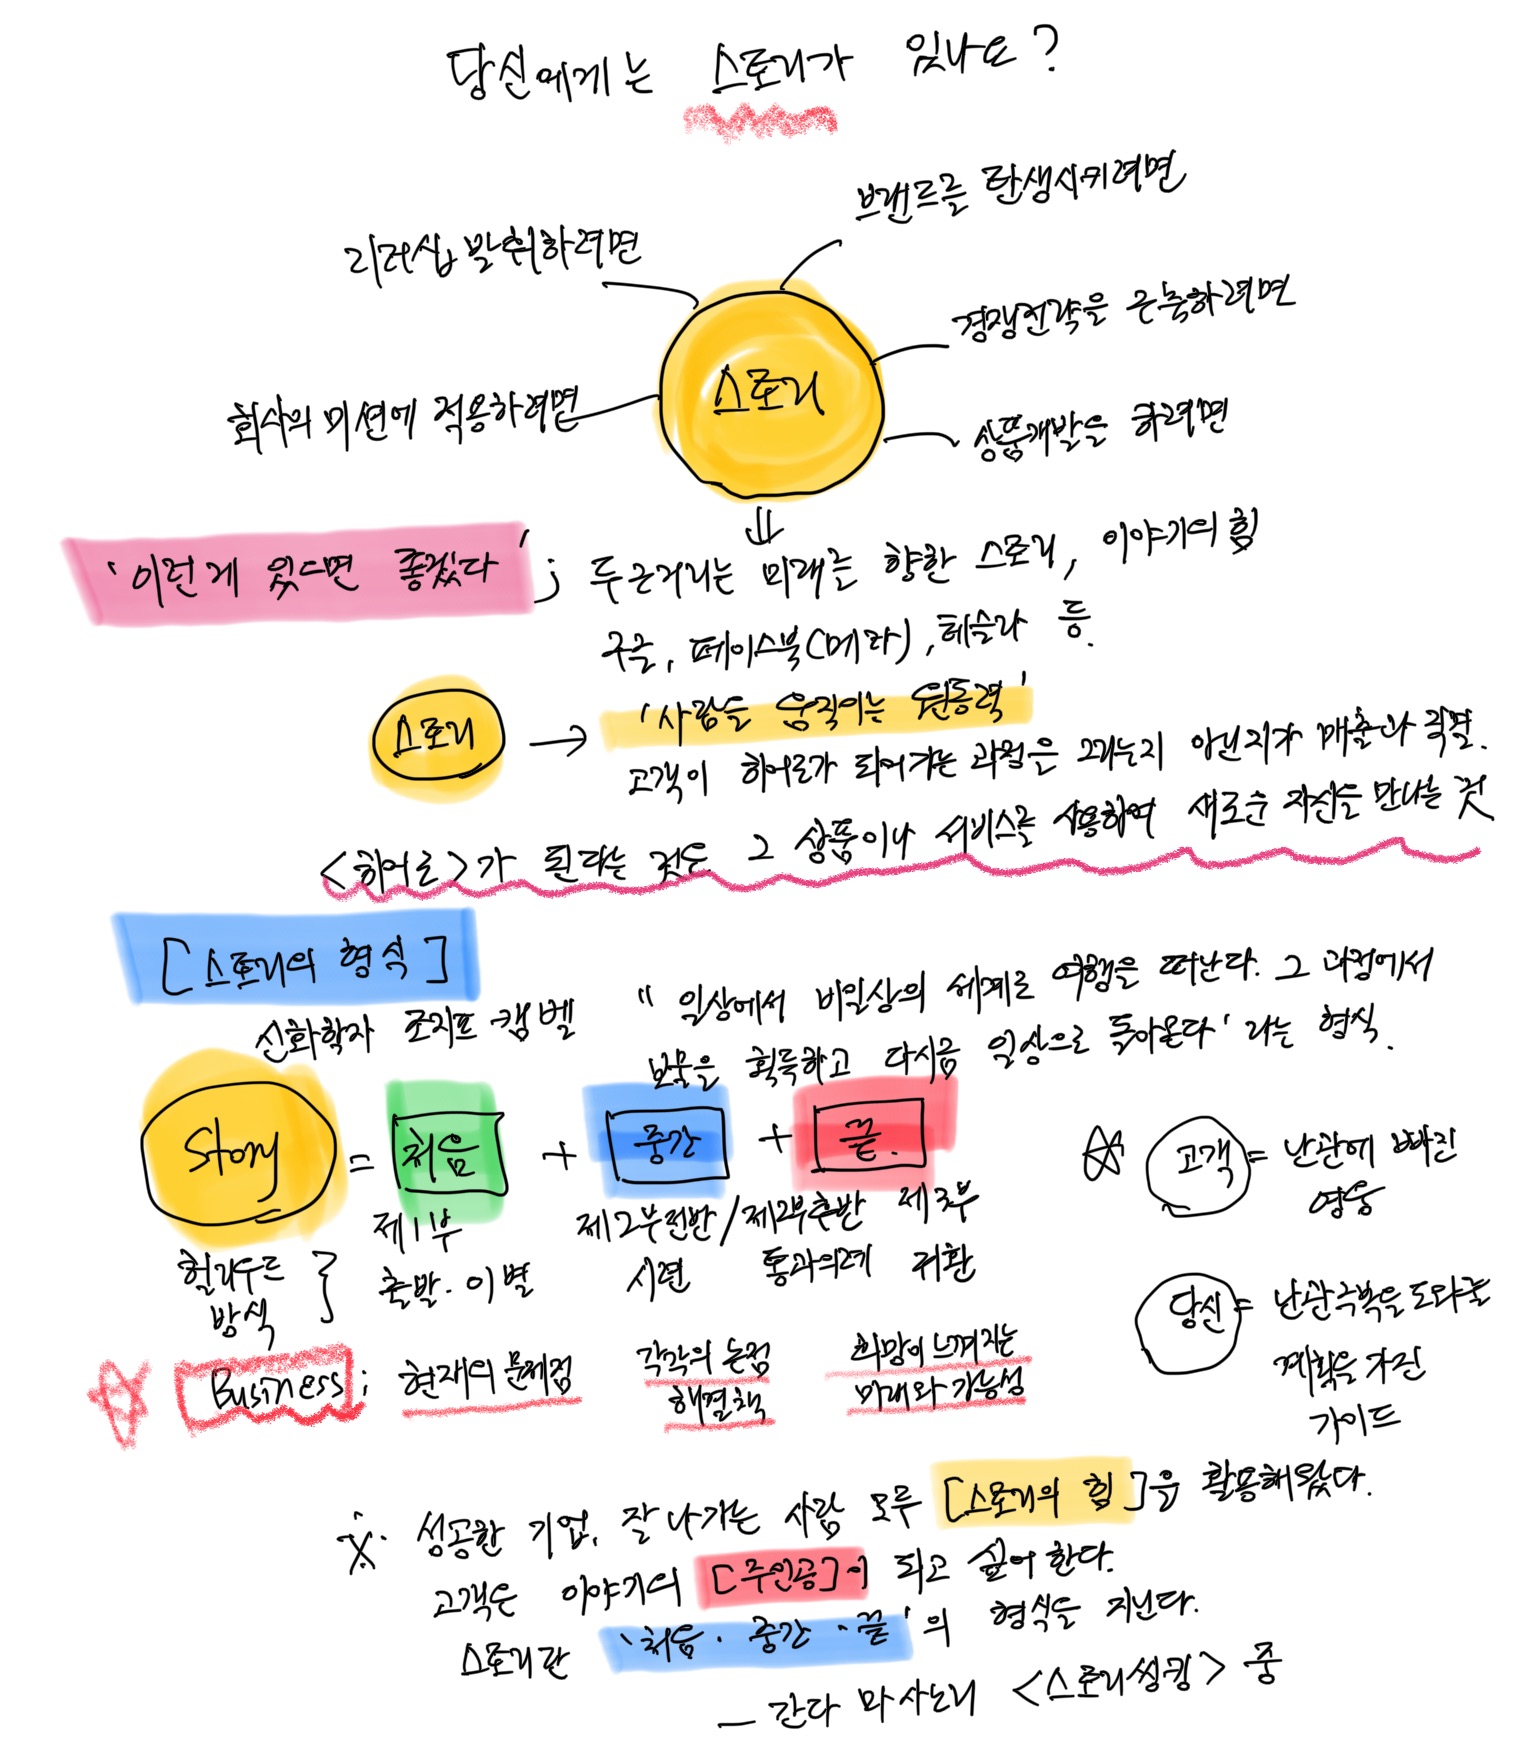 당신에게는 스토리가 있나요?
브랜드를 탄생시키려면
리더십 발휘하려면
경쟁전략을 구축하려면
스토리
회사의 미션에 적용하려면
상품개발을 하려면
'이런게 있으면 좋겠다' ; 두근거리는 미래를 향한 스토리, 이야기의 힘
구글, 페이스북(메타), 테슬라 등.
스토리 → '사람을 움직이는 원동력'
고객이 히어로가 되어가는 과정을 그리는지 아닌지가 매출과 직결.
<히어로>가 된다는 것은 그 상품이나 서비스를 사용하여 새로운 자신을 만나는 것
[스토리의 형식]
신화학자 조지프 캠벨 " 일상에서 비일상의 세계로 여행을 떠난다. 그 과정에서
보물을 획득하고 다시금 일상으로 돌아온다' 라는 형식.
Story = 처음 + 중간 + 끝.
제1부 제2부전반/제2부후반 제3부
헐리우드 방식 } 출발·이별 시련 통과의례 귀환
☆ 고객 = 난관에 빠진
영웅
당신 = 난관극복을 도와줄
계획을 가진
가이드
☆ Business ; 현재의 문제점 각각의 논점 희망이 느껴지는
해결책 미래와 가능성
※ 성공한 기업, 잘 나가는 사람 모두 [스토리의 힘]을 활용해왔다.
고객은 이야기의 [주인공]이 되고 싶어 한다.
스토리란 '처음·중간·끝'의 형식을 지닌다.
— 간다 마사노리 <스토리씽킹> 중